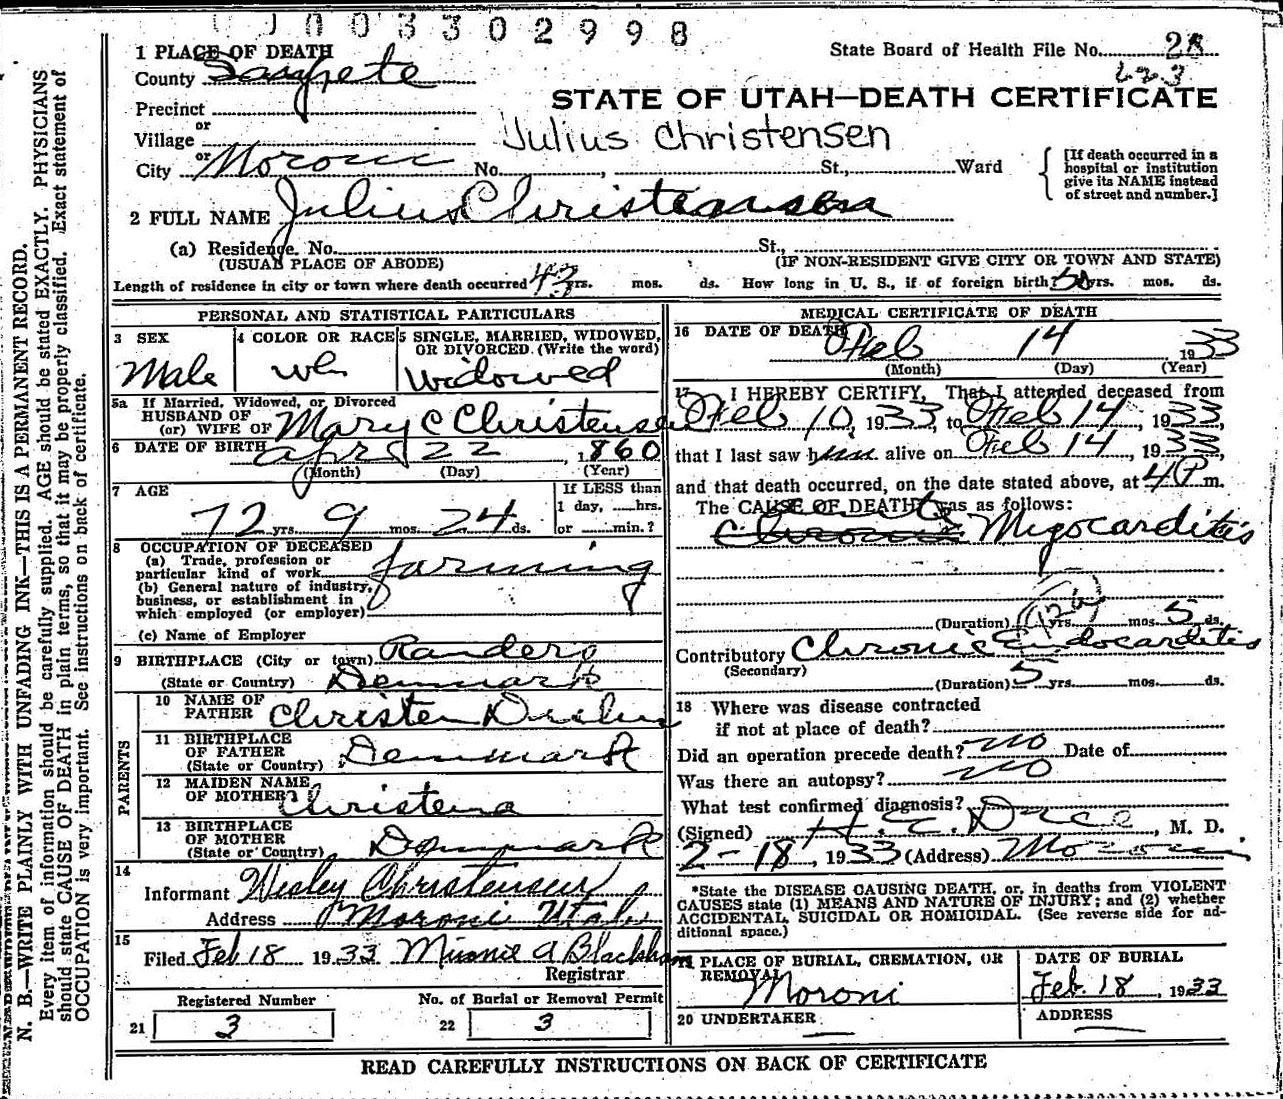 0 0 0 3 3 0 2 9 9 8
1 PLACE OF DEATH
State Board of Health File No. 28
County Sanpete
223
Precinct
STATE OF UTAH—DEATH CERTIFICATE
or
Village
Julius Christensen
or
City Moroni No. , St., Ward
[If death occurred in a hospital or institution give its NAME instead of street and number.]
2 FULL NAME Julius Christensen
(a) Residence. No. St.,
(USUAL PLACE OF ABODE) (IF NON-RESIDENT GIVE CITY OR TOWN AND STATE)
Length of residence in city or town where death occurred 43 yrs. mos. ds. How long in U. S., if of foreign birth? 50 yrs. mos. ds.
PERSONAL AND STATISTICAL PARTICULARS
3 SEX
Male
4 COLOR OR RACE
wh
5 SINGLE, MARRIED, WIDOWED,
OR DIVORCED (Write the word)
Widowed
5a If Married, Widowed, or Divorced
HUSBAND OF
(or) WIFE OF Mary C Christensen
6 DATE OF BIRTH Apr 22, 1860
(Month) (Day) (Year)
7 AGE
72 yrs. 9 mos. 24 ds.
If LESS than
1 day, hrs.
or min.?
8 OCCUPATION OF DECEASED
(a) Trade, profession or
particular kind of work farming
(b) General nature of industry,
business, or establishment in
which employed (or employer)
(c) Name of Employer
9 BIRTHPLACE (City or town) Randers
(State or Country) Denmark
PARENTS
10 NAME OF
FATHER Christen
11 BIRTHPLACE
OF FATHER
(State or Country) Denmark
12 MAIDEN NAME
OF MOTHER Christena
13 BIRTHPLACE
OF MOTHER
(State or Country) Denmark
14
Informant Wesley Christensen
Address Moroni Utah
15
Filed Feb 18 1933 Minnie A Blackham
Registrar
Registered Number
21 3
No. of Burial or Removal Permit
22 3
MEDICAL CERTIFICATE OF DEATH
16 DATE OF DEATH
Feb 14 1933
(Month) (Day) (Year)
17 I HEREBY CERTIFY, That I attended deceased from
Feb 10, 1933, to Feb 14, 1933,
that I last saw him alive on Feb 14, 1933,
and that death occurred, on the date stated above, at 4 P m.
The CAUSE OF DEATH* was as follows:
Chronic Myocarditis
(Duration) yrs. mos. 5 ds.
Contributory Chronic Endocarditis
(Secondary)
(Duration) 5 yrs. mos. ds.
18 Where was disease contracted
if not at place of death?
Did an operation precede death? no Date of
Was there an autopsy? no
What test confirmed diagnosis?
(Signed) H. C. , M. D.
2-18, 1933 (Address) Moroni
*State the DISEASE CAUSING DEATH, or, in deaths from VIOLENT
CAUSES state (1) MEANS AND NATURE OF INJURY; and (2) whether
ACCIDENTAL, SUICIDAL OR HOMICIDAL. (See reverse side for ad-
ditional space.)
19 PLACE OF BURIAL, CREMATION, OR
REMOVAL
Moroni
DATE OF BURIAL
Feb. 18, 1933
20 UNDERTAKER
ADDRESS
READ CAREFULLY INSTRUCTIONS ON BACK OF CERTIFICATE
N. B.—WRITE PLAINLY WITH UNFADING INK—THIS IS A PERMANENT RECORD.
Every item of information should be carefully supplied. AGE should be stated EXACTLY. PHYSICIANS
should state CAUSE OF DEATH in plain terms, so that it may be properly classified. Exact statement of
OCCUPATION is very important. See instructions on back of certificate.